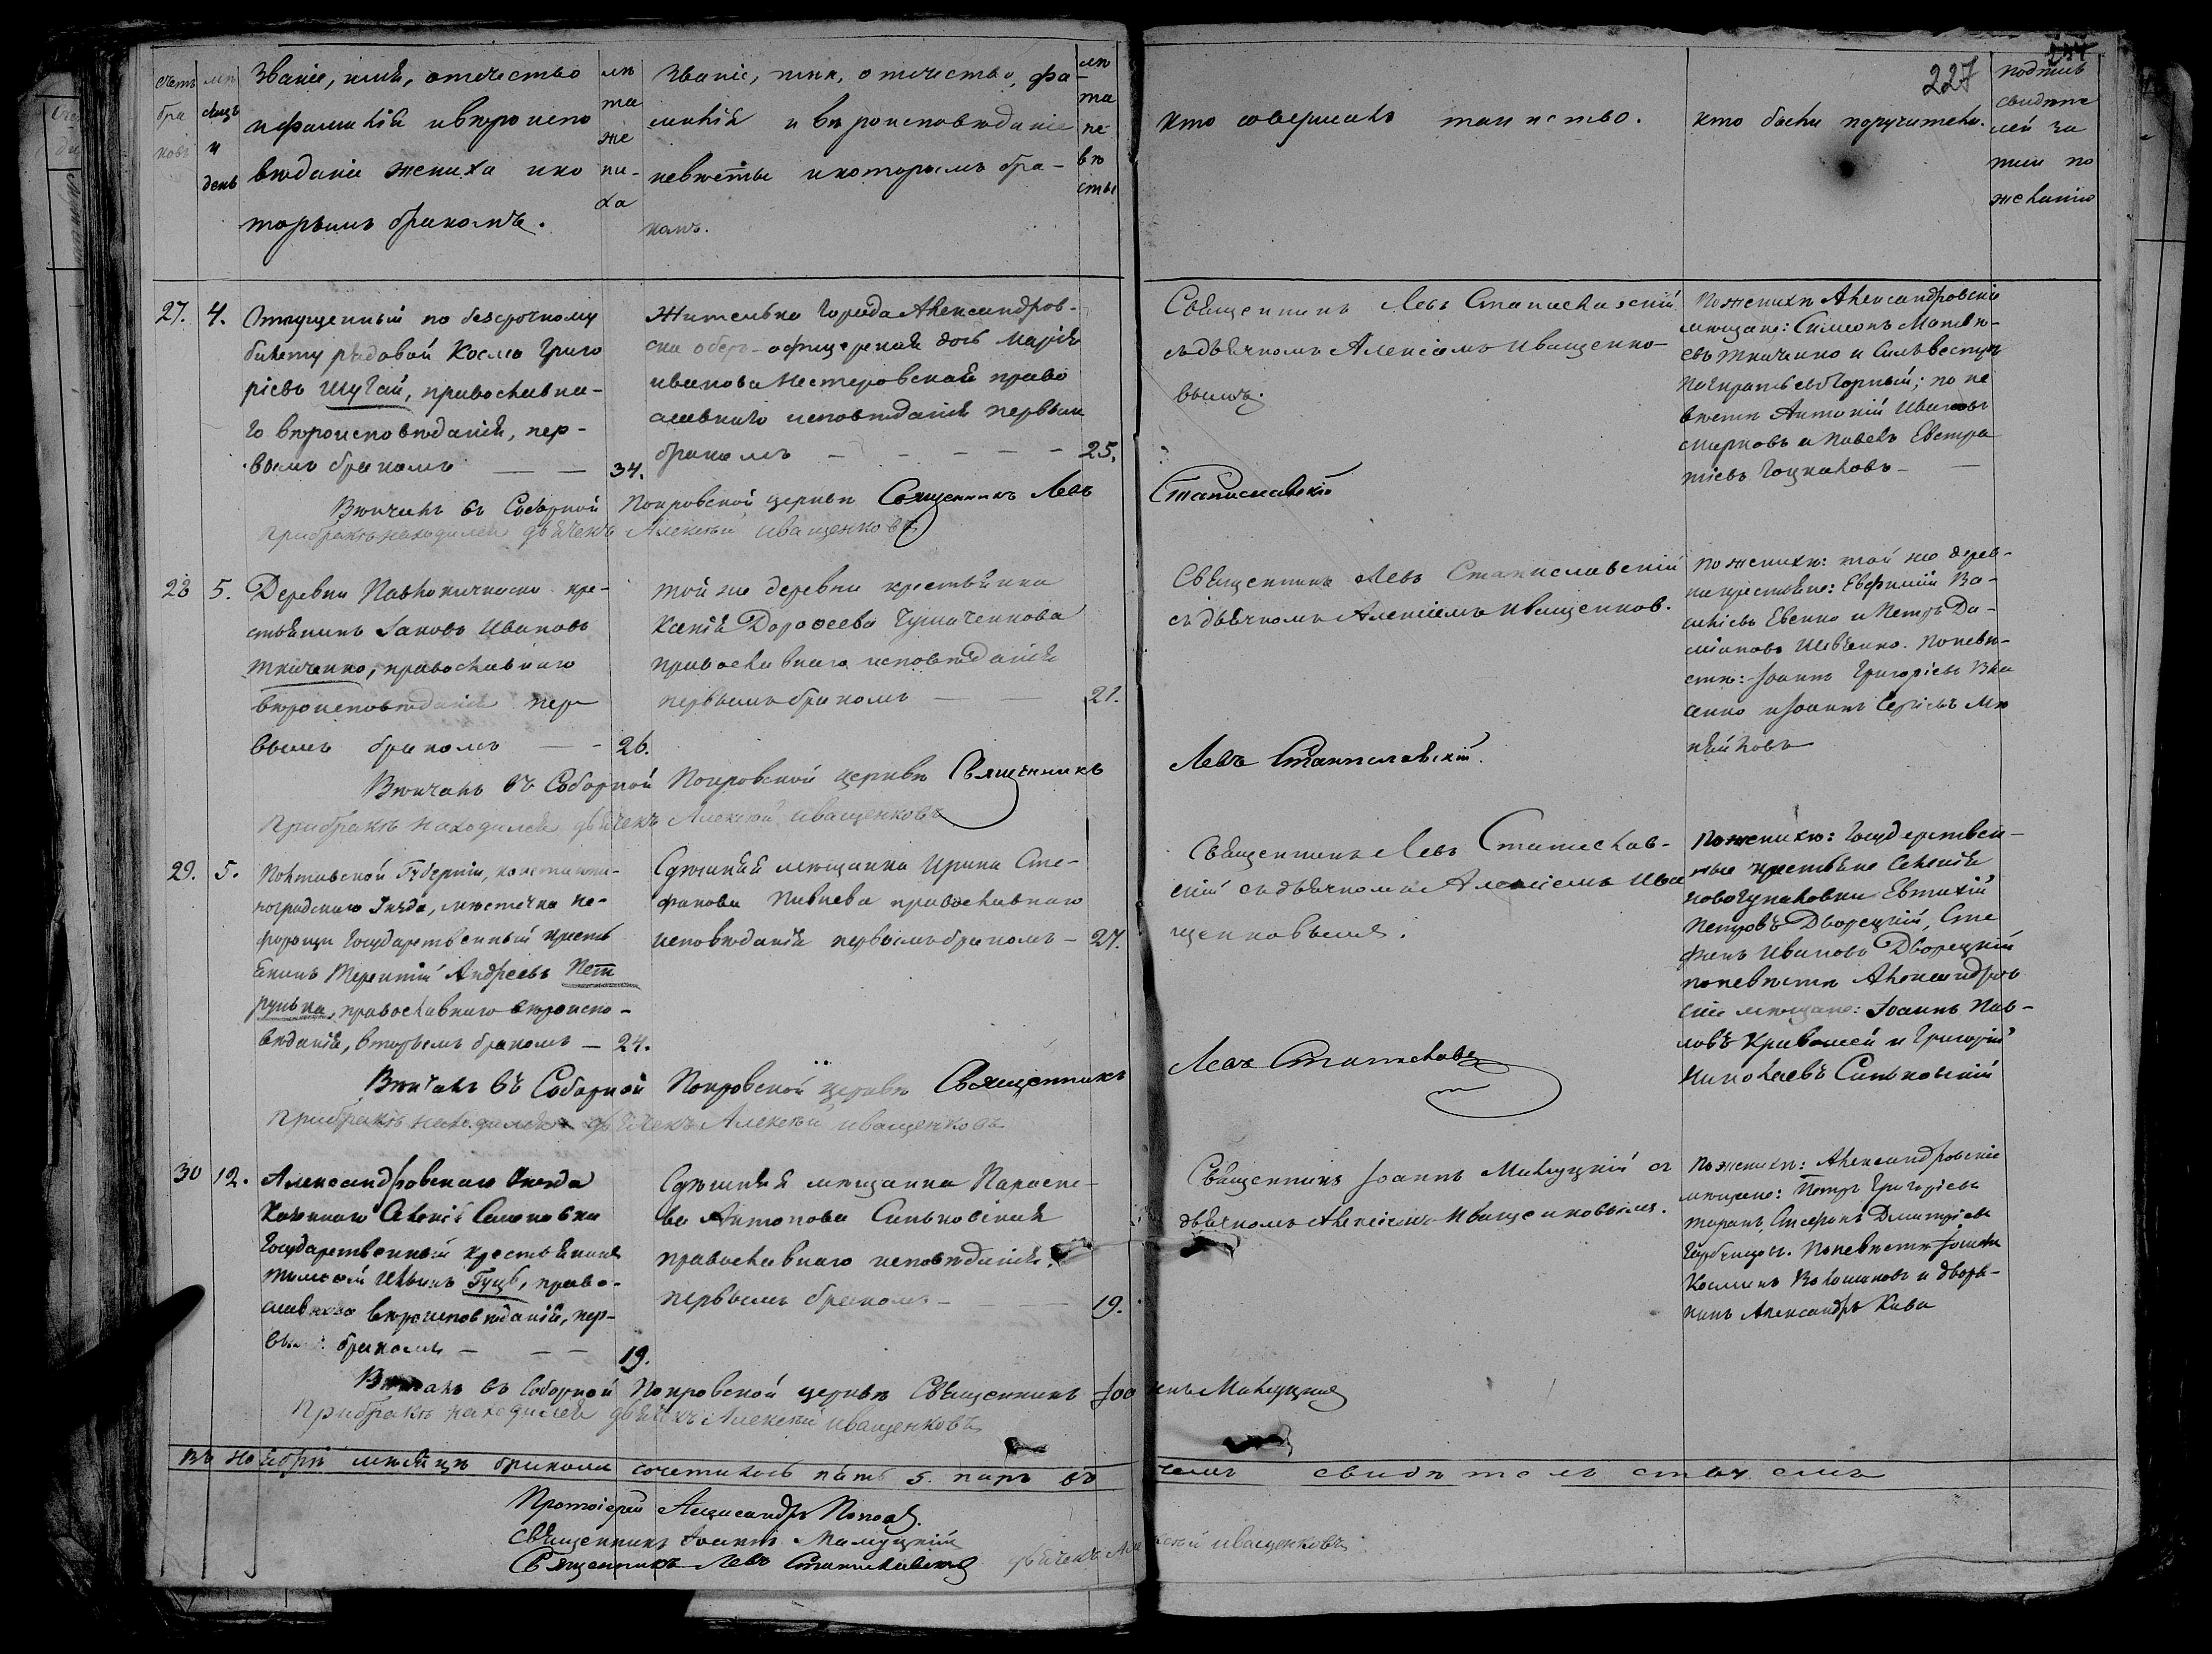 счетъ браковъ
мѣсяцъ и день
Званіе, имя, отечество
и фамилія и вѣроиспо
вѣданіе жениха и ко
торымъ бракомъ.
лѣта жениха
Званіе, имя, отечество, фа-
милія и вѣроисповѣданіе
невѣсты и которымъ бра-
комъ.
лѣта невѣсты
кто совершалъ таинство.
кто были поручители.
227
подпись
свидѣте
лей за
писи по
желанію
27. 4.
Отпущенный по безсрочному
билету рядовой Косма Григо
рьевъ Шугай, православна-
го вѣроисповѣданія, пер-
вымъ бракомъ — — 34.
Жителька города Александров-
ска оберъ-офицерская дочь Марія
Иванова Нестеровская право
славнаго исповѣданія первым
бракомъ - - - - - 25.
Священникъ Левъ Станиславскій
съ дьячкомъ Алексіемъ Иващенко-
вымъ.
По женихѣ Александровскіе
мѣщане: Симеонъ Матвѣ-
евъ Ткаченко и Сильвестръ
; по не
вѣстѣ Антоній Ивановъ
Смирновъ и Павелъ Евстра
тіевъ
Вѣнчалъ въ Соборной Покровской церкви Священникъ Левъ Станиславскій
При бракѣ находился дьячекъ Алексѣй Иващенковъ
28 5.
Деревни Павлокичкаски кре-
стьянинъ Іаковъ Ивановъ
Ткаченко, православнаго
вѣроисповѣданія пер
вымъ бракомъ — - 26.
той же деревни крестьянка
Ксенія Дорофеева Чумаченкова
православнаго исповѣданія
первымъ бракомъ — 21.
Священникъ Левъ Станиславскій
съ дьячкомъ Алексіемъ Иващенков.
По женихѣ: той же дерев-
ни крестьяне: Евфимій Ва-
силіевъ Евенко и Петръ Да-
міановъ Шевченко. По невѣ-
стѣ: Іоаннъ Григоріевъ Вла
сенко и Іоаннъ Сергіевъ
Вѣнчалъ въ Соборной Покровской церкви Священникъ Левъ Станиславскій.
При бракѣ находился дьячекъ Алексѣй Иващенковъ
29. 5.
Полтавской Губерніи, константи-
ноградскаго уѣзда, мѣстечка Не-
форощи Государственный кресть
янинъ Терентій Андреевъ Пет
рунька, православнаго вѣроиспо-
вѣданія, вторымъ бракомъ — 24.
Сдѣшняя мѣщанка Ирина Сте-
фанова Пивнева православнаго
исповѣданія первымъ бракомъ — 27.
Священникъ Левъ Станислав-
скій съ дьячкомъ Алексіемъ Ива
щенковымъ.
По женихѣ: Государствен-
ные крестьяне Селенія
Новогупаловки Евтихій
Петровъ Дворецкій, Сте
фанъ Ивановъ Дворецкій
по невѣстѣ Александров
скіе мѣщане: Іоаннъ Пав-
ловъ Кривошей и Григорій
Николаевъ Синьковскій
Вѣнчалъ въ Соборной Покровской церкви Священникъ Левъ Станиславс
При бракѣ находился дьячекъ Алексѣй Иващенковъ
30 12.
Александровскаго Уѣзда
Казеннаго Селенія
Государственный крестьянинъ
Тимоѳей Ильинъ Гуцъ, право-
славнаго вѣроисповѣданія, пер-
вымъ бракомъ — — — 19.
Сдѣшняя мѣщанка Параске-
ва Антонова Синьковская
православнаго исповѣданія.
первымъ бракомъ — — 19.
Священникъ Іоаннъ Малуцкій съ
дьячкомъ Алексіемъ Иващенковымъ.
По женихѣ: Александровскіе
мѣщане: Петръ Григоріевъ
Таранъ Стефанъ Дмитріевъ
Горбицов. По невѣстѣ Іоаннъ
Косминъ Волошиновъ и дворя-
нинъ Александръ Кива
Вѣнчалъ въ Соборной Покровской церкви Священникъ Іоаннъ Малуцкій
При бракѣ находился дьячекъ Алексѣй Иващенковъ
Въ Ноябрѣ мѣсяцѣ бракомъ сочеталось пять 5. паръ въ чемъ свидѣтельствуемъ
Протоіерей Александръ Попов.
Священникъ Іоаннъ Малуцкій
Священникъ Левъ Станиславскій дьячекъ Алексѣй Иващенковъ